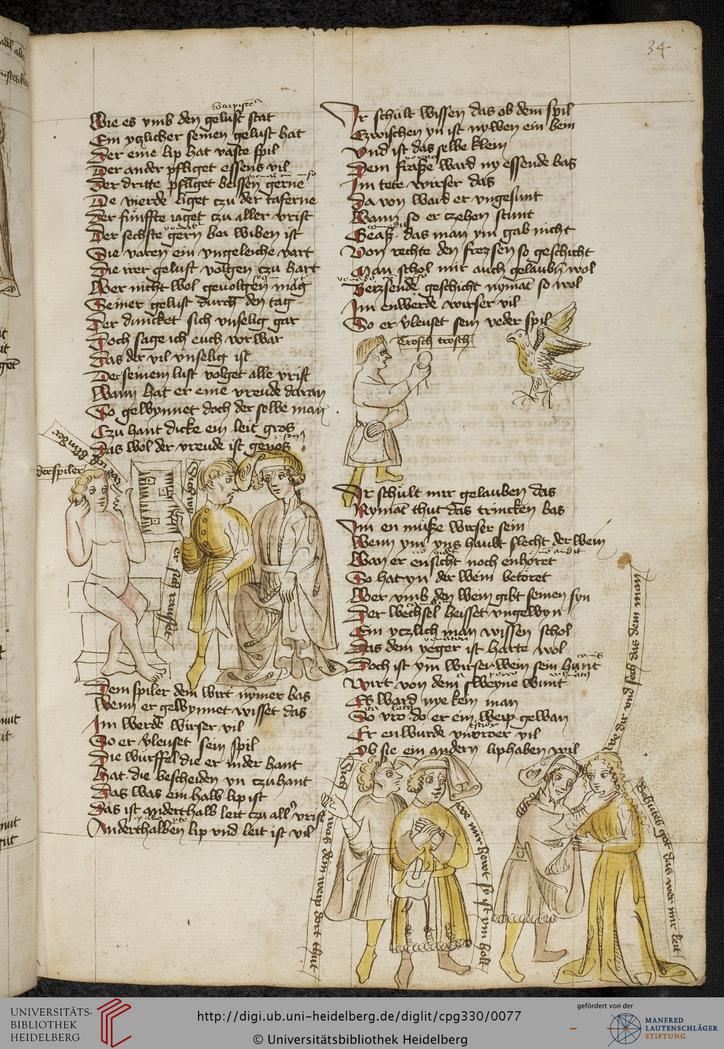 34
Wie es vmb den gelust stat
Ein yglicher seinen gelust hat
Der eine lip hat vaste spil
Der ander pfliget essens vil
Der dritte pfliget beissen gerne
De vierde liget czu der taferne
Der funffte iaget czu aller vrist
Der sechste gern bei wiben ist
Sie varen ein vngeleiche vart
Die irer gelust volgen czu hart
Wer nicht wol gevolgen mag
Seiner gelust durch den tag
Der duncket sich vnselig gar
Doch sage ich euch vor war
Das der vil vnselig ist
Der seinem lust volget alle vrist
Wann hat er eine vreude daran
So gewynnet doch der selbe man
Czu hant dicke ein leit gros
Das wol der vreude ist genos
der spiler
Dem spiler dem wirt nymer bas
Wenn er gewynnet wisset das
Im werde wirser vil
So er vleuset sein spil
Die wurffel die er in der hant
Hat die bescheiden yn czu hant
Das was ein halb lip ist
Das ist anderthalb leit czu all vrist
Anderthalben lip vnd leit ist vil
Ir schult wissen das ob dem spil
Czwischen yn ist nywen ein bein
Vnd ist das selbe klein
Dem fraße ward ny essende bas
Im tete wirser das
Da von ward er vngesunt
Wann so er czehen stunt
Geaß das man ym gab nicht
Von rechte den frezsen so geschicht
Man schol mir auch gelaubn wol
Beizsende geschicht nymal so wol
Im enwerde wirser vil
So er vleuset sein veder spil
Trosch trosch
Ir schult mir gelauben das
Nymal thut das trincken bas
Im en muße wirser sein
Wenn ym yns haubt slecht der wein
Wan er ensicht noch enhoret
So hat yn der wein betoret
Wer vmb den wein gibt seinen syn
Der wechsel heisset vngewyn
Ein yczlich man wissen schol
Das dem yeger ist harte wol
Doch ist ym wirser wem sein hunt
Wirt von dem sweyne wunt
Es ward nye kein man
So vro do er ein weip gewan
Er enwurde vnvroer vil
Ob sie ein andern liphaben wil
UNIVERSITÄTS-
BIBLIOTHEK
HEIDELBERG
http://digi.ub.uni-heidelberg.de/diglit/cpg330/0077
© Universitätsbibliothek Heidelberg
gefördert von der
MANFRED
LAUTENSCHLÄGER
STIFTUNG